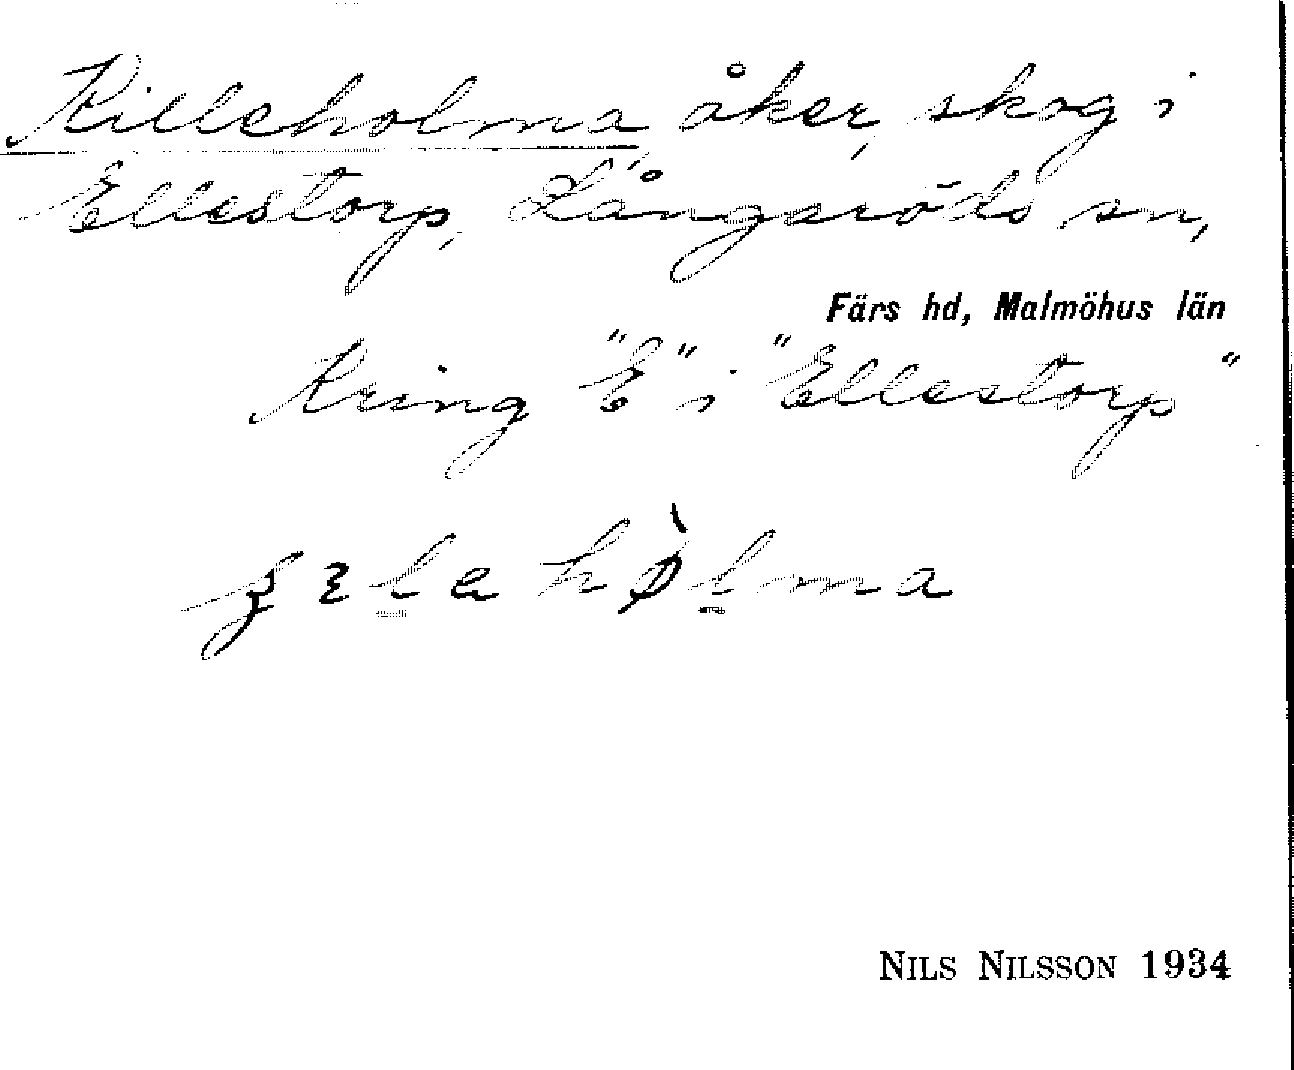 Killeholma, åker, skog i
Ellestorp, Långaröds sn,
Färs hd, Malmöhus län
Kring "E" i "Ellestorp"
NILS NILSSON 1934